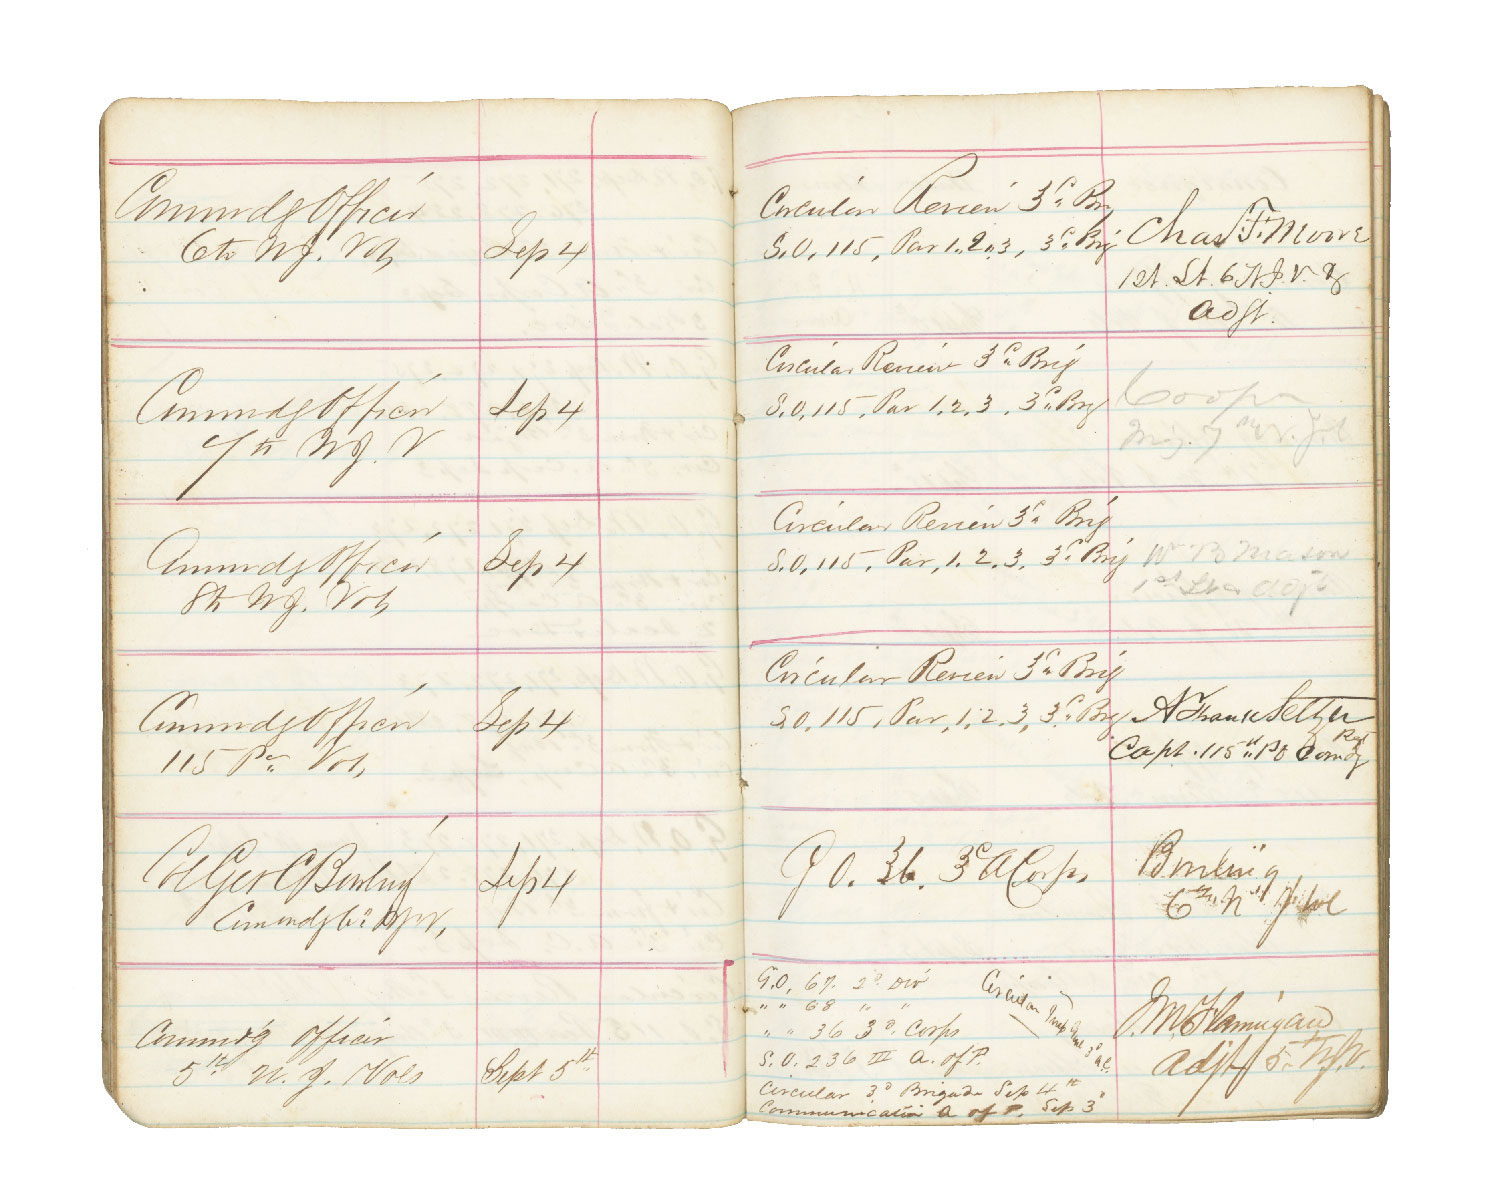 Commndg Officer
6th N.J. Vols
Sep 4
Circular Review 3d Brig
S.O. 115, Par 1, 2, 3, 3d Brig
Chas F. Moore
1st. Lt. 6 N J V &
adjt.
Commndg Officer
7th N.J. V
Sep 4
Circular Review 3d Brig
S.O. 115, Par 1, 2, 3, 3d Brig
Cooper
Maj. 7th N. J. V
Commndg Officer
8th N.J. Vols
Sep 4
Circular Review 3d Brig
S.O. 115, Par, 1, 2, 3, 3d Brig
Wm B Mason
1st Lt & Adjt
Commndg Officer
115 Pa Vols
Sep 4
Circular Review 3d Brig
S.O. 115, Par, 1, 2, 3, 3d Brig
Capt. 115th Pa Comdg
Regt
Col Geo C Burling
Commndg 6th NJV,
Sep 4
G O. 36. 3d A Corps
Burling
6th N J Vol
Commd'g Officer
5th N. J. Vols
Sept 5th
G.O. 67. 2d Div
" " 68 " "
" " 36 3d. Corps
Circular
S.O. 236 III A. of P.
Circular 3d Brigade Sep 4th
Communication A of P. Sep 3d
Adjt 5th N.J.V.